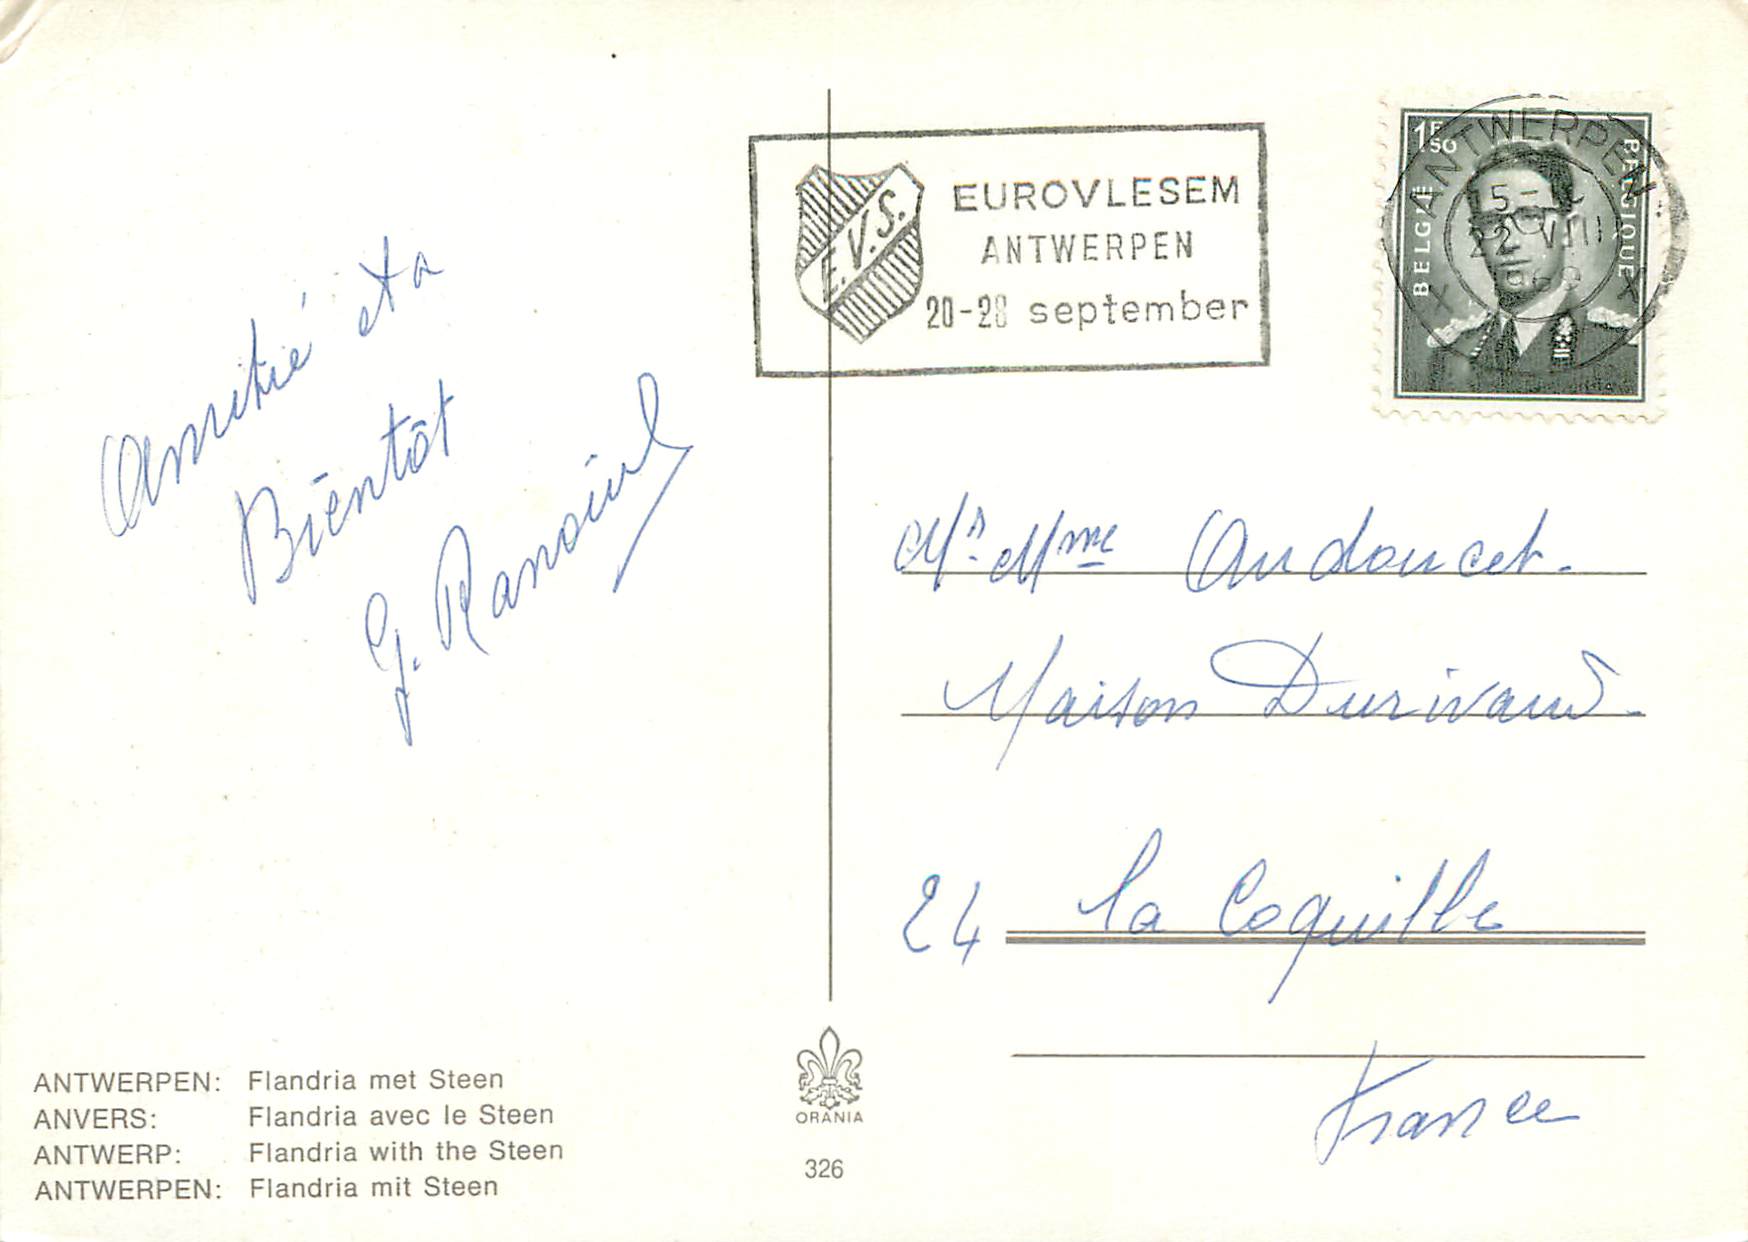 Amitié et a
Bientôt
G.
EUROVLESEM
ANTWERPEN
20-28 september
E.V.S.
ANTWERPEN
15-
22 VIII
1F50
BELGIË
BELGIQUE
Mr. Mme Audoucet.
Maison Durivaud.
24 La Coquille
France
ANTWERPEN: Flandria met Steen
ANVERS: Flandria avec le Steen
ANTWERP: Flandria with the Steen
ANTWERPEN: Flandria mit Steen
ORANIA
326